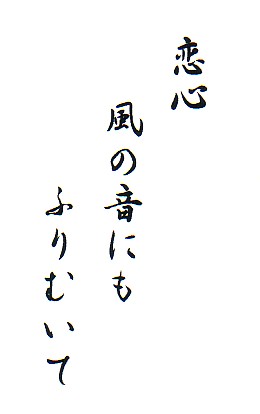 恋心
風の音にも
ふりむいて